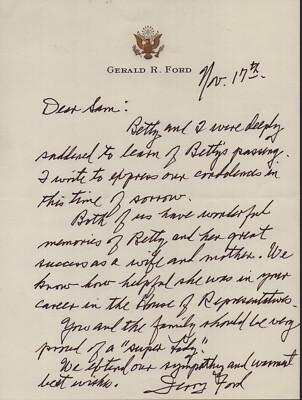 GERALD R. FORD
Nov. 17th.
Dear Sam:
Betty and I were deeply
saddened to learn of Bettys passing.
I write to express our condolences in
this time of sorrow.
Both of us have wonderful
memories of Betty and her great
success as a wife and mother. We
know how helpful she was in your
career in the House of Representatives.
You and the family should be very
proud of a "super lady."
We extend our sympathy and warmest
best wishes. Jerry Ford